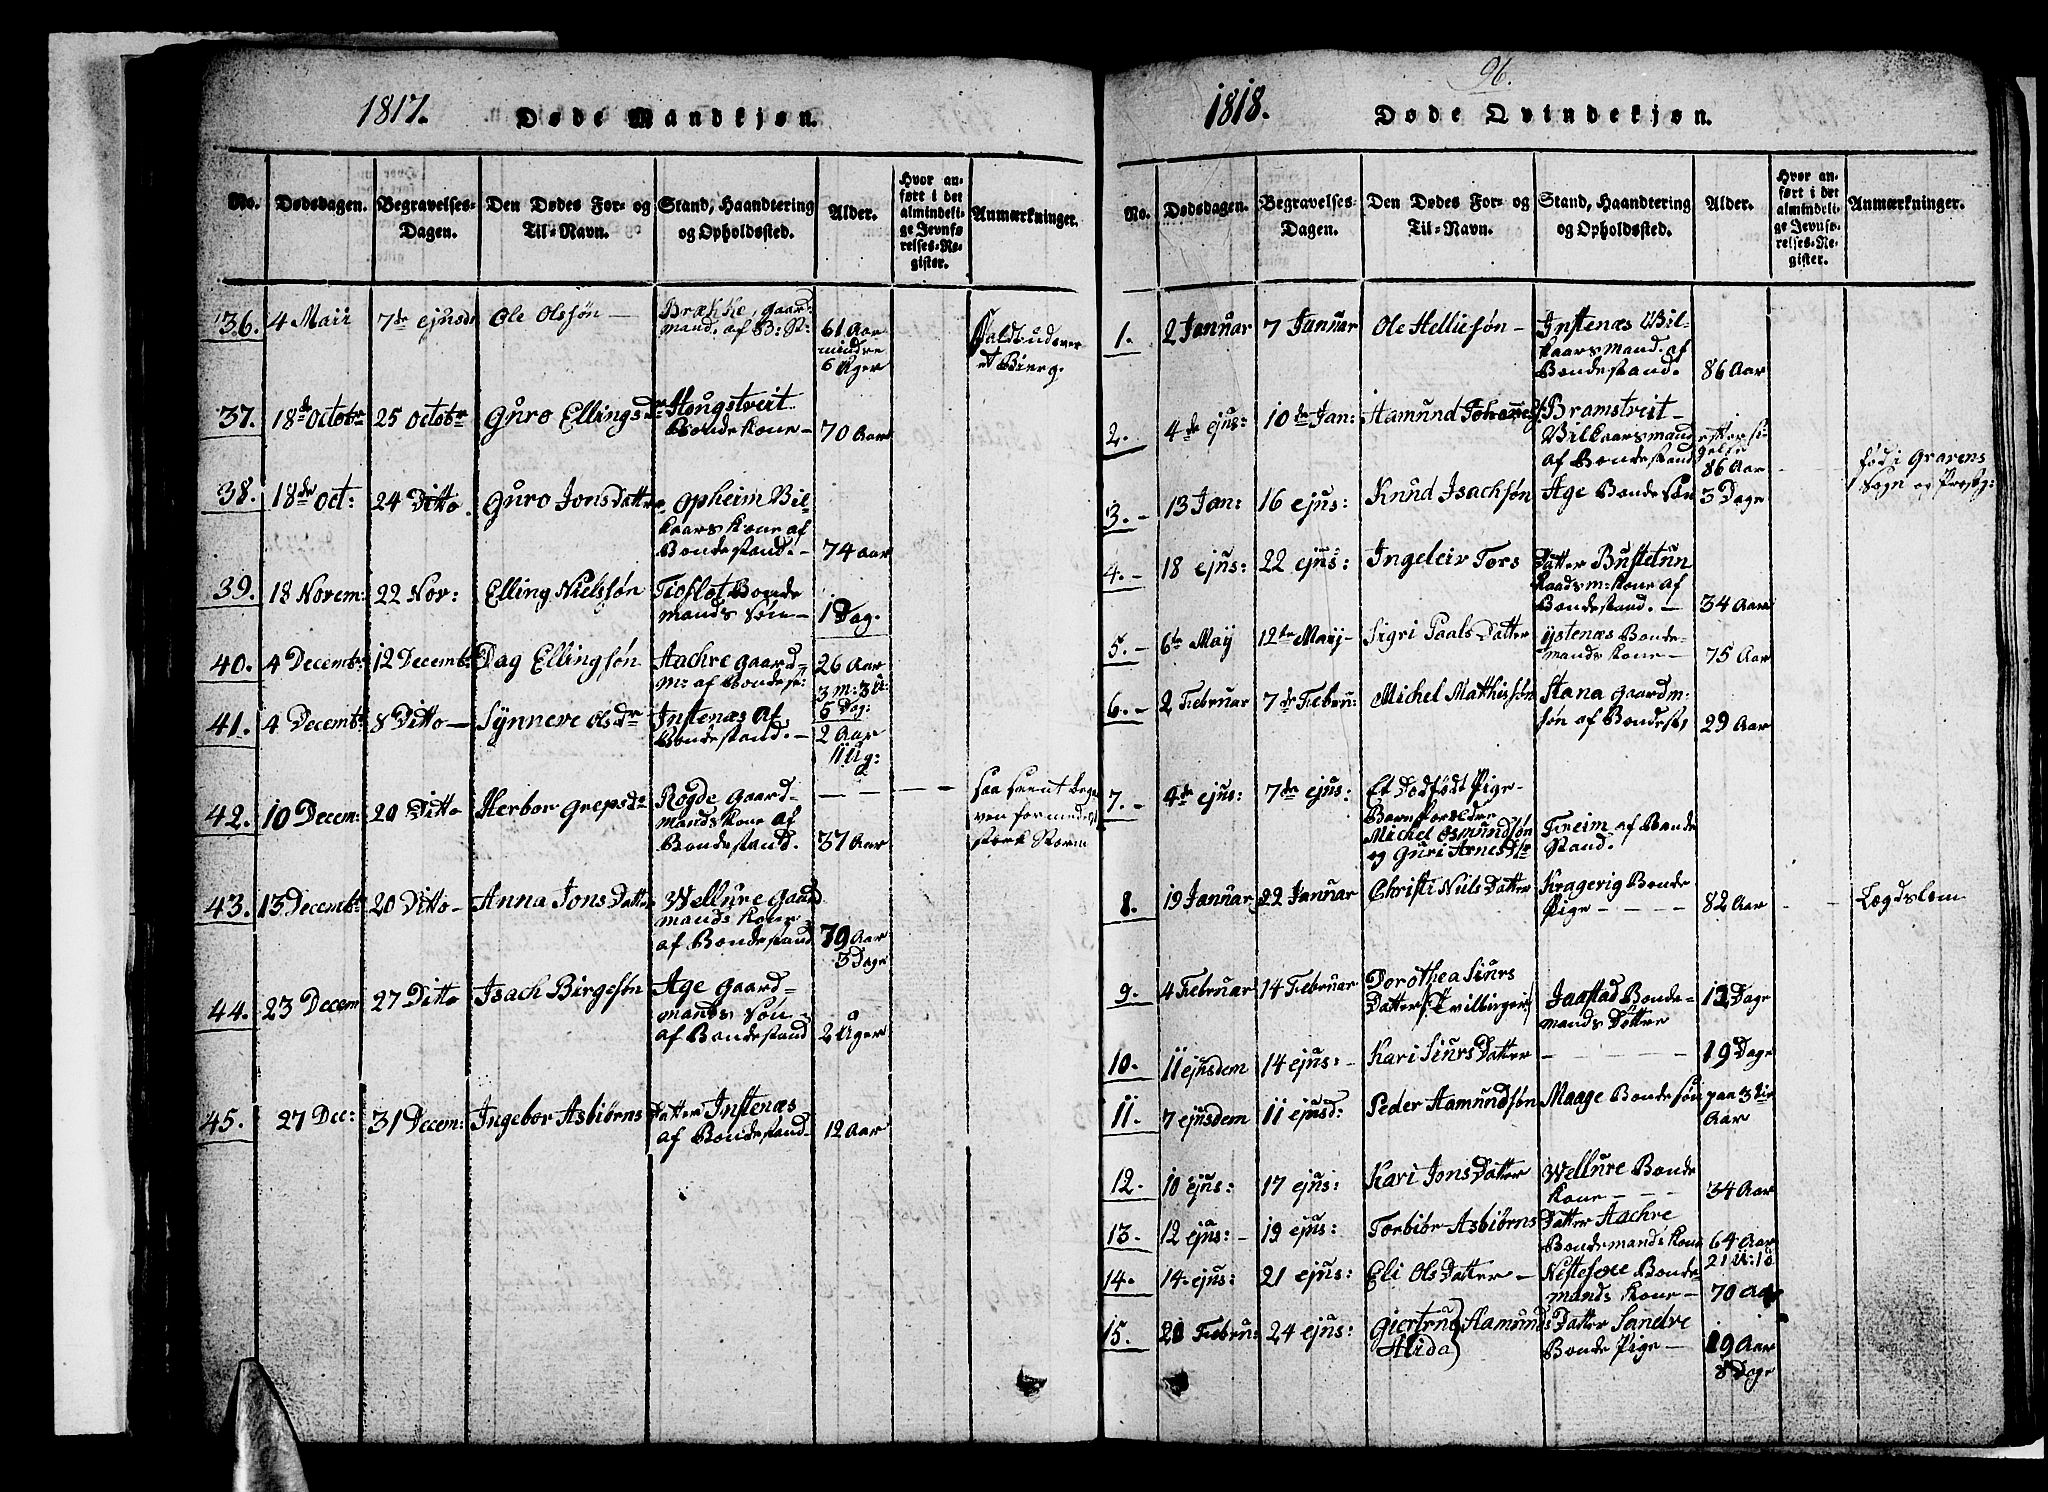 1817.
Døde Mandkjøn.
No.
Dødsdagen.
Begravelses-
Dagen.
Den Dødes For- og
Til-Navn.
Stand, Haandtering
og Opholdssted.
Alder.
Hvor an-
ført i det
almindeli-
ge Jevnfø-
relses-Re-
gister.
Anmærkninger.
36. 4 Maii 7de ejusd: Ole Olssøn — Brække, gaard-
mand. af B: St: 61 Aar
mindre
6 Uger
et Bierg.
37. 18de Octobr 25 Octobr Guro Ellingsdr Hougstveit
Bondekone — 70 Aar
38. 18de Oct: 24 Ditto. Guro Jons Datter Opheim Vil-
kaars kone af
Bondestand. — 74 Aar
39. 18 Novem: 22 Nov: Elling Nielssøn Tioflot Bonde
mands Søn — 1 Dag.
40. 4 Decembr 12 Decembr Dag Ellingsøn Aachre gaard-
m: af Bondest: 26 Aar
3 m: 3 U:
5 Dag:
41. 4 Decembr 8 Ditto — Synneve Olsdr Instenæs af
Bondestand. — 2 Aar
11 Ug:
42. 10 Decem: 20 Ditto Herbor Grepsdr Røgde Gaard-
mands kone af
Bondestand. 37 Aar
saa sent begra-
ven formedelst
stærk Storm
43. 13 Decembr 20 Ditto — Anna Jons Datter Wellure Gaard
mands kone
af Bondestand 79 Aar
3 Dage
44. 23 Decem 27 Ditto Isach Birgesøn Age Gaard-
mands Søn —
af Bondestand 2 Uger
45. 27 Dec: 31 Decem: Ingebor Asbiørns Datter Instenæs
af Bondestand — 12 Aar
96.
1818.
Døde Qvindekjøn.
No.
Dødsdagen.
Begravelses-
Dagen.
Den Dødes For- og
Til-Navn.
Stand, Haandtering
og Opholdssted.
Alder.
Hvor an-
ført i det
almindeli-
ge Jevnfø-
relses-Re-
gister.
Anmærkninger.
1. 2 Januar 7 Januar Ole Helliesøn — Instenæs Vil-
kaarsmand. af
Bondestand. 86 Aar
2. 4de ejus: 10de Jan: Aamund Bramstveit —
Vilkaarsmand
af Bondestand efter si-
gelse
86 Aar
fød i Gravens
Sogn og Præstg:
3. — 13 Jan: 16 ejus: Knud Isachsøn Age Bonde Søn 3 Dage
4. — 18 ejus: 22 ejus: Ingeleiv Tors Datter Bustetun
Bondestand. — 34 Aar
5. — 6te May 12te Maij — Sigri Paals Datter Ystenæs Bonde-
mands kone — 75 Aar
6. — 2 Februar 7de Febru: Michel Mathissøn Hana gaardm:
søn af Bondest, 29 Aar
7. — 4de ejus: 7de ejus: Et Dødfødt Pige-
Barn forælder
Michel Osmundsøn
og Guri Arnesdtr Freim af Bonde
Stand.
8. 19 Januar 22 Januar Christi Nils Datter Kragerig Bonde
Pige — — — 82 Aar — Lægdslem
9. 4 Februar 14 Februar Dorothea Siurs
Datter (Tvillinger) Jaastad Bonde-
mands Datter 13 Dage
10. 11 ejusdem 14 ejus: — Kari Siurs Datter — — — — 19 Dage
11. 7 ejusdem 11 ejusd: Peder Aamundsøn Maage Bondesøn paa 3die
Aar
12. 10 ejus: 17 ejus: Kari Jons Datter Wellure Bonde
kone — — — 34 Aar
13. 12 ejus: — 19 ejus: Torbiør Asbiørns Datter Aachre
Bondemands kone 64 Aar
14. 14. ejus: 21 ejus: Eli Ols Datter — Bonde-
mands kone — 70 Aar
15. 20 Februs 24 ejus: Giertrud
Alida) Aamunds Datter Sandve
Bonde Pige — 19 Aar
8 Dage